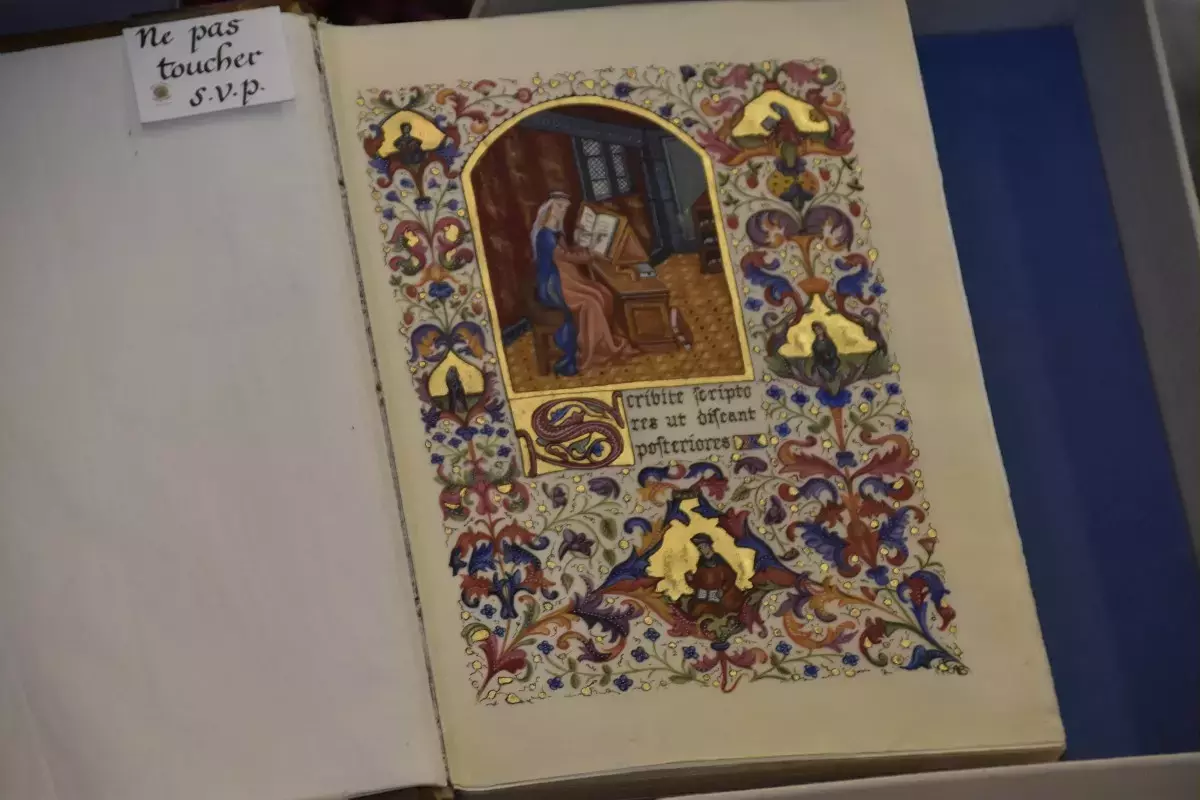 Ne pas
toucher
s.v.p.
Scribite scripto
res ut discant
posteriores